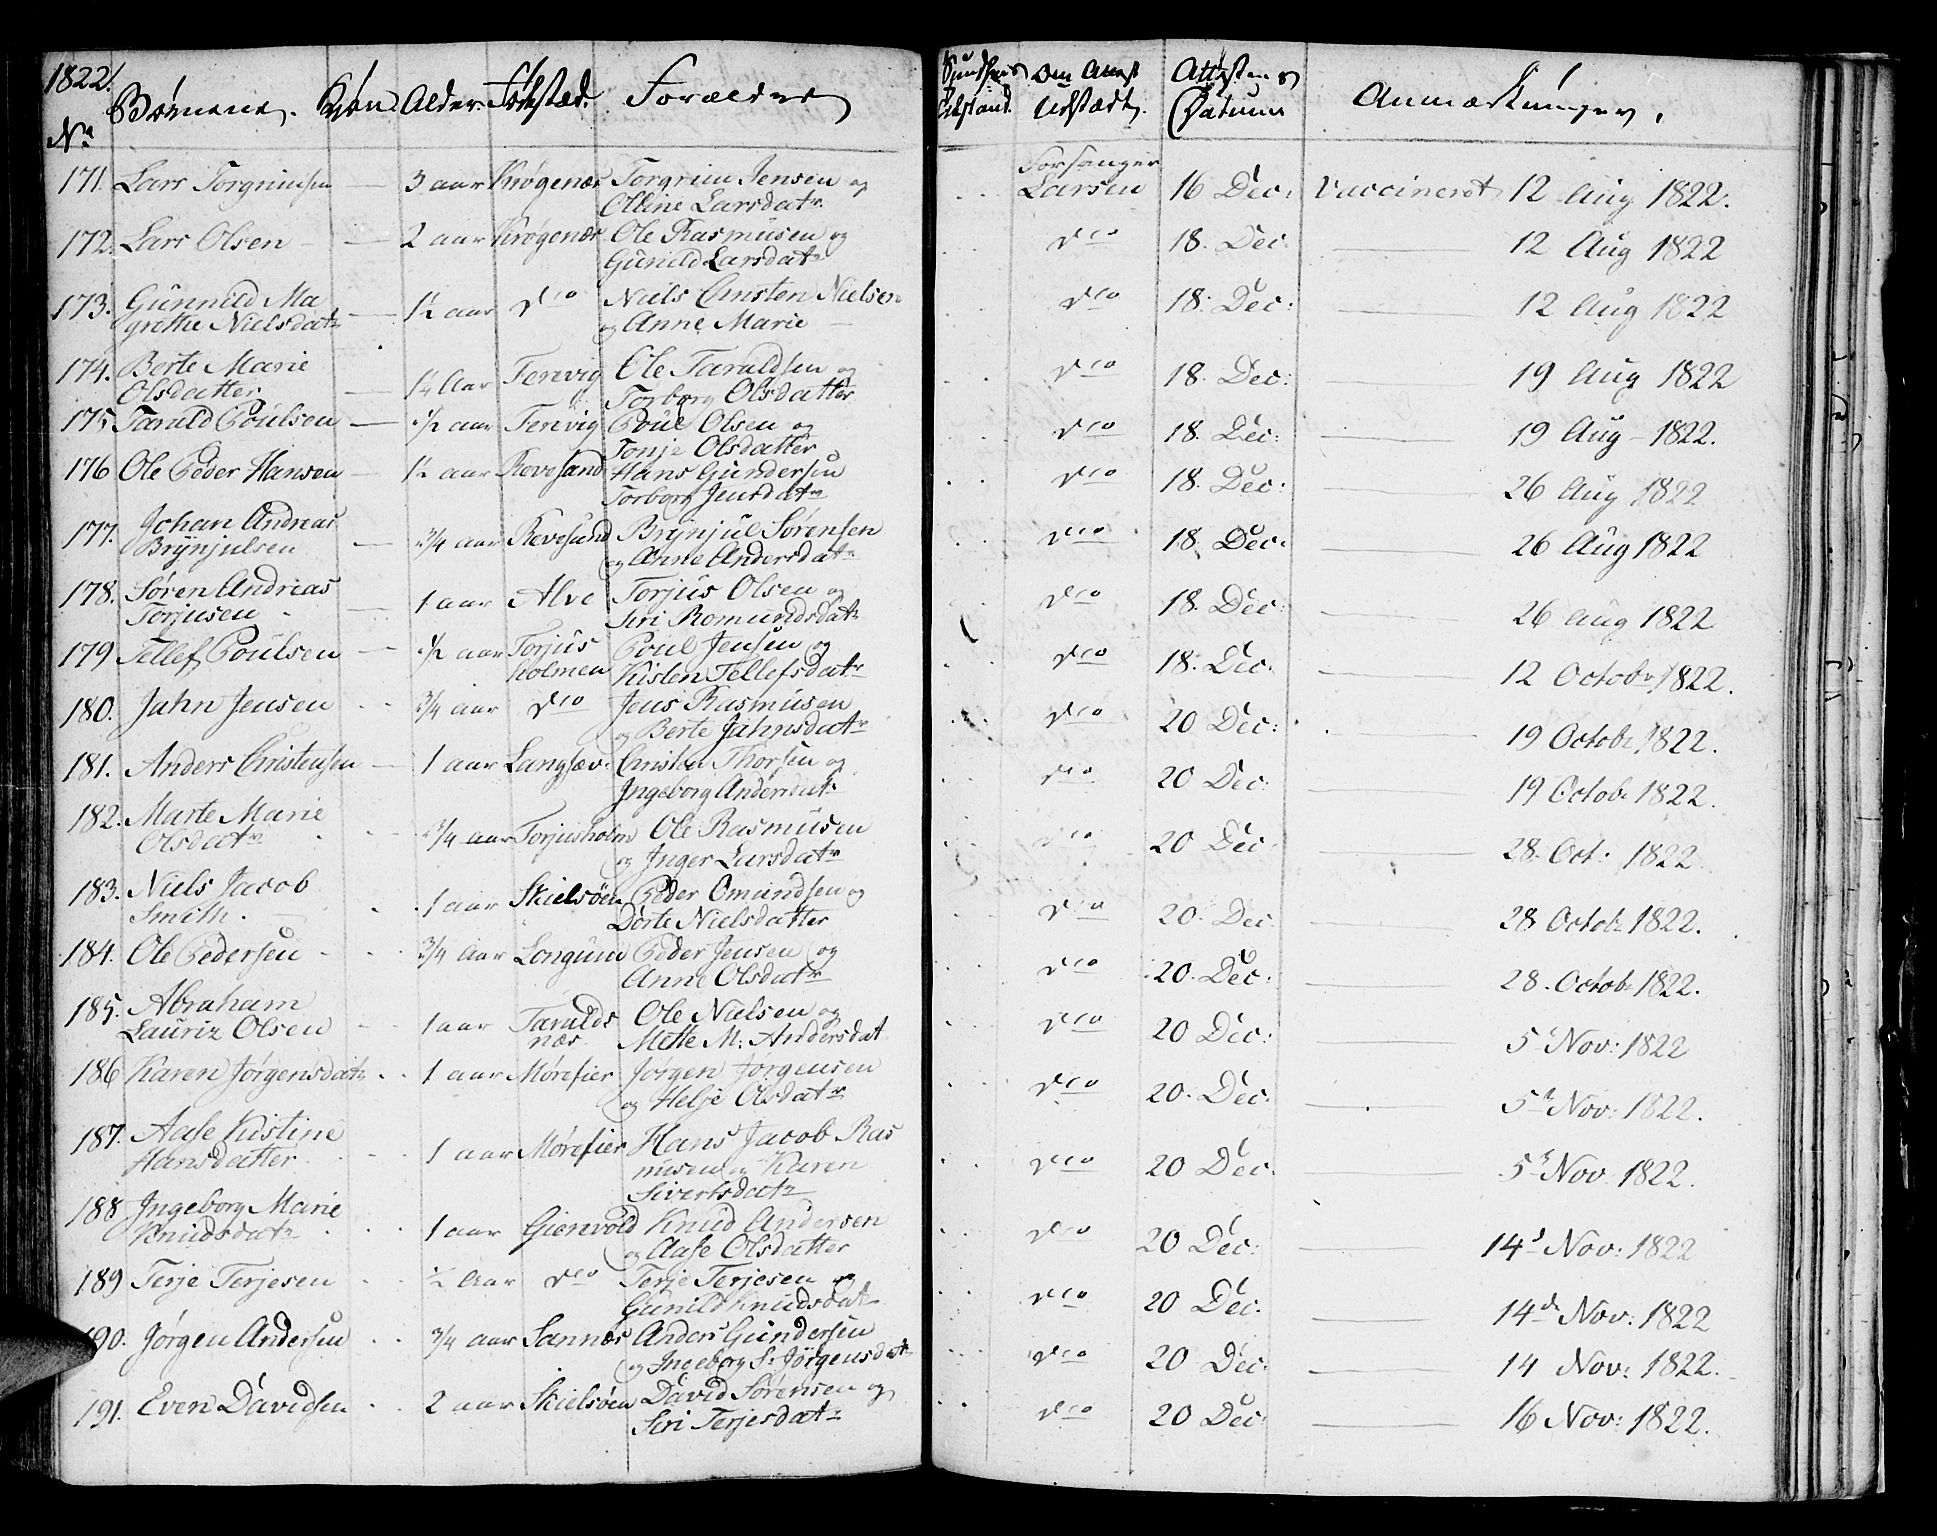 1822.
No Børnene. Kjøn Alder. Fødested. Forældre
171. Lars Torgrimsen — 3 aar Krøgenæs Torgrim Jensen og
Olline Larsdatr
172. Lars Olsen — 2 aar Krøgenæs Ole Rasmusen og
Gunild Larsdatr
173. Gunnild Ma
grethe Nielsdatr — 1½ aar dco Niels Christen Nielsen
og Anne Marie —
174. Berte Marie
Olsdatter — 1¼ Aar Ferevig Ole Taraldsen og
Torborg Olsdatter
175 Tarald Poulsen — ½ aar Ferevig Poul Olsen og
Tonje Olsdatter
176 Ole Peder Hansen — 1½ aar Revesand Hans Gundersen
Torborg Jensdatr
177. Johan Andreas
Brynjulsen — ¾ aar Revesand Brynjul Sørensen
og Anne Andersdatr
178. Søren Andreas
Torjusen — 1 aar Alve Torjus Olsen og
Siri Romundsdatr
179 Tellef Poulsen — ½ aar Torjus
holmen Poul Jensen og
Kisten Tellefsdatr
180. Jahn Jensen ¾ aar dco Jens Rasmusen
og Berte Jahnsdatr
181. Anders Christensen — 1 aar Langsæv. Christen Thorsen og
Ingeborg Andersdatr
182. Marte Marie
Olsdatr ¾ aar Torjusholm Ole Rasmusen
og Inger Larsdatr
183. Niels Jacob
Smith. 1 aar Skielsöen Peder Omundsen og
Dorte Nielsdatter
184. Ole Pedersen ¾ aar Longum Peder Jensen og
Anne Olsdatr
185. Abraham
Lauriz Olsen 1 aar Taralds
næs Ole Nielsen og
Mette M: Andersdat
186 Karen Jørgensdatr 1 aar Mørefier Jørgen Jørgensen
og Helje Olsdatr
187. Aase Kistine
Hansdatter 1 aar Mørefier Hans Jacob Ras
musen og Karen
Sivertsdatr
188 Ingeborg Marie
Knudsdatr 1 aar Gienvold Knud Andersen
og Aase Olsdatter
189 Terje Terjesen ½ Aar dco Terje Terjesen og
Gunild Knudsdatr
190. Jørgen Andersen ¾ aar Sannæs Anders Gundersen
og Ingeborg S: Jörgensdatr
191. Even Davidsen 2 aar Skielsöen David Sørensen og
Siri Terjesdatr
Attestens
Datum Anmærkninger.
Forsanger
Larsen 16 Dec: Vaccineret 12 Aug 1822.
dco 18. Dec: — 12 Aug 1822
dco 18: Dec: — 12 Aug 1822
dco 18. Dec: — 19 Aug 1822
dco 18. Dec: — 19 Aug — 1822.
dco 18. Dec: — 26 Aug 1822
dco 18. Dec: — 26 Aug 1822
dco 18. Dec: — 26 Aug 1822
dco 18. Dec. — 12 Octobr 1822.
dco 20 Dec: — 19 Octobr 1822.
dco 20 Dec: — 19 Octobr 1822.
dco 20 Dec — 28. Oct: 1822
dco 20. Dec — 28 Octobr 1822.
dco 20. Dec: — 28. Octobr 1822.
dco 20 Dec: — 5t Nov: 1822
dco 20. Dec: — 5t Nov: 1822.
dco 20 Dec: — 5t Nov 1822.
dco 20 Dec: — 14d Nov: 1822
dco 20 Dec. — 14de Nov: 1822
dco 20 Dec: — 14 Nov: 1822.
dco 20 Dec: — 16 Nov: 1822.